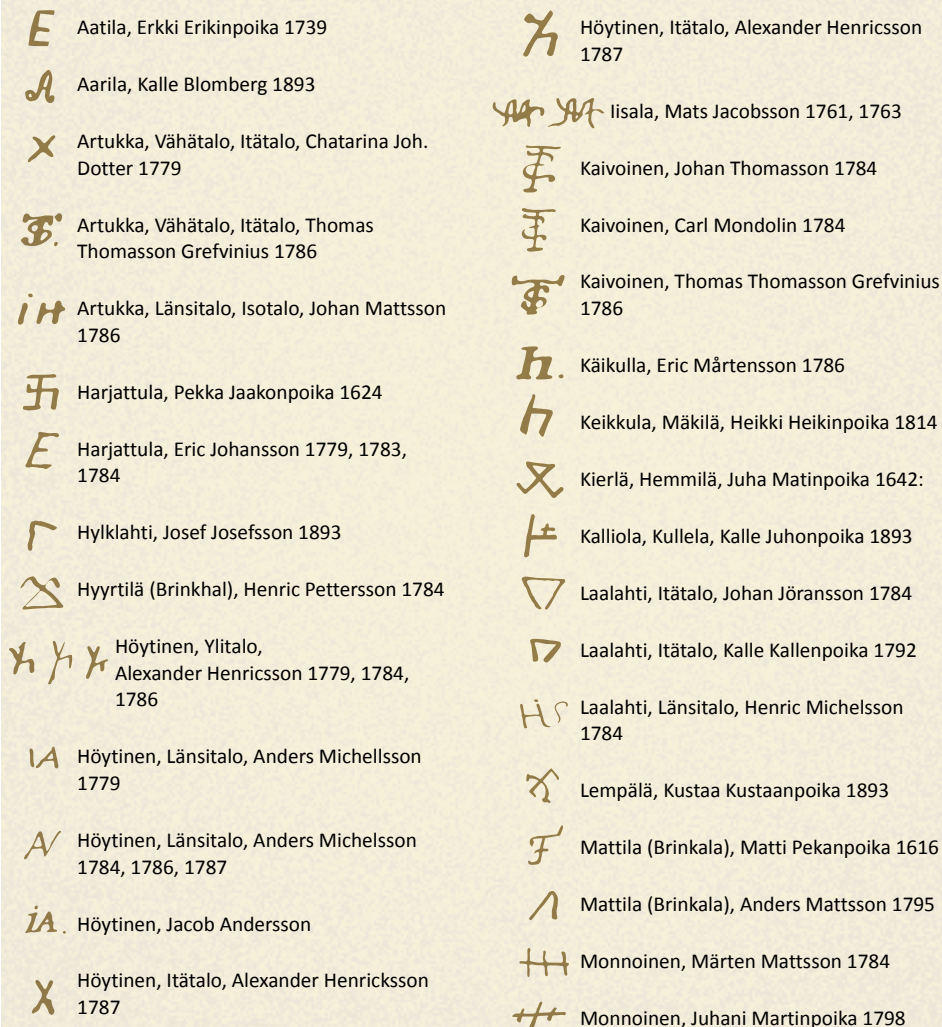 Aatila, Erkki Erikinpoika 1739
Aarila, Kalle Blomberg 1893
Artukka, Vähätalo, Itätalo, Chatarina Joh.
Dotter 1779
Artukka, Vähätalo, Itätalo, Thomas
Thomasson Grefvinius 1786
Artukka, Länsitalo, Isotalo, Johan Mattsson
1786
Harjattula, Pekka Jaakonpoika 1624
Harjattula, Eric Johansson 1779, 1783,
1784
Hylklahti, Josef Josefsson 1893
Hyyrtilä (Brinkhal), Henric Pettersson 1784
Höytinen, Ylitalo,
Alexander Henricsson 1779, 1784,
1786
Höytinen, Länsitalo, Anders Michellsson
1779
Höytinen, Länsitalo, Anders Michelsson
1784, 1786, 1787
Höytinen, Jacob Andersson
Höytinen, Itätalo, Alexander Henricksson
1787
Höytinen, Itätalo, Alexander Henricsson
1787
Iisala, Mats Jacobsson 1761, 1763
Kaivoinen, Johan Thomasson 1784
Kaivoinen, Carl Mondolin 1784
Kaivoinen, Thomas Thomasson Grefvinius
1786
Käikulla, Eric Mårtensson 1786
Keikkula, Mäkilä, Heikki Heikinpoika 1814
Kierlä, Hemmilä, Juha Matinpoika 1642:
Kalliola, Kullela, Kalle Juhonpoika 1893
Laalahti, Itätalo, Johan Jöransson 1784
Laalahti, Itätalo, Kalle Kallenpoika 1792
Laalahti, Länsitalo, Henric Michelsson
1784
Lempälä, Kustaa Kustaanpoika 1893
Mattila (Brinkala), Matti Pekanpoika 1616
Mattila (Brinkala), Anders Mattsson 1795
Monnoinen, Märten Mattsson 1784
Monnoinen, Juhani Martinpoika 1798